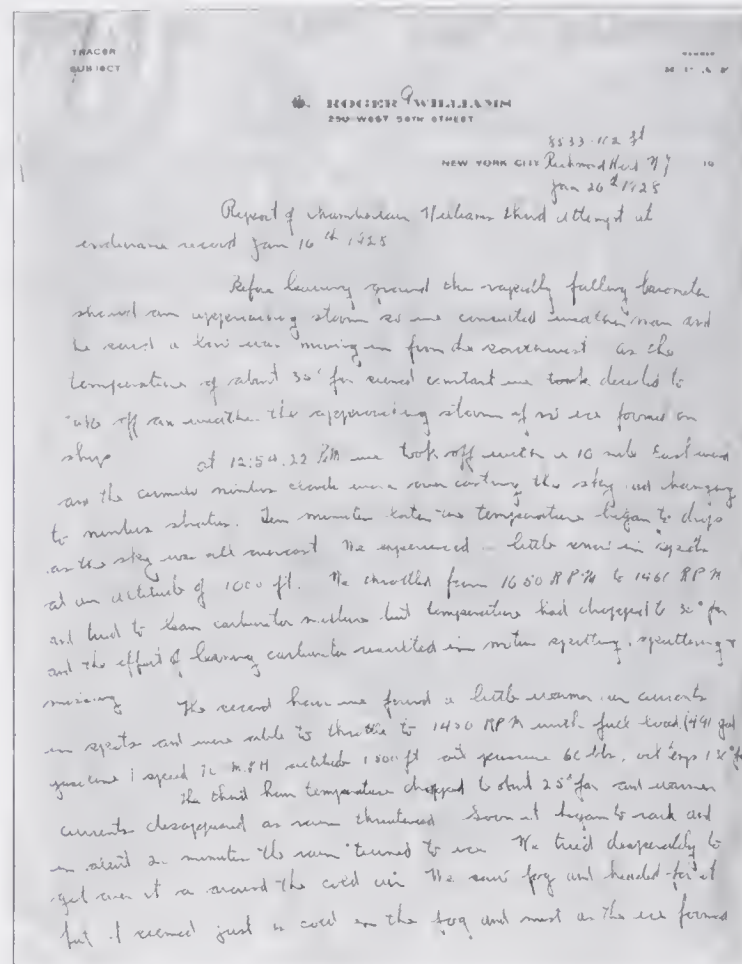 TRACOR
SUBJECT
ROGER Q WILLIAMS
250 WEST 50TH STREET
8533-112 st
NEW YORK CITY Richmond Hill NY 19
Jan 26 1928
Report of Chamberlain Williams third attempt at
endurance record Jan 16th 1928
Before leaving ground the rapidly falling barometer
showed an approaching storm so we consulted weather man and
he said a low was moving in from the southwest as the
temperature of about 30° far seemed constant we decided to
take off and weather the approaching storm if no ice formed on
ship at 12:54.22 PM we took off with a 10 mile East wind
and the cumulo nimbus clouds were over casting the sky and changing
to nimbus stratus. Ten minutes later temperature began to drop
as the sky was all overcast We experienced little in spots
at an altitude of 1000 ft. We throttled from 1650 RPM to RPM
and tried to lean carburetor mixture but temperature had dropped to far
and the effect of leaning carburetor resulted in motor spitting, sputtering &
missing The second hour we found a little warmer air currents
in spots and were able to throttle to RPM with full load (491 gal
gasoline) speed M.P.H altitude ft oil pressure 60 lbs. oil temp
The third hour temperature dropped to about 25° far and warmer
currents disappeared as rain threatened Soon it began to and
in about minutes the rain turned to ice We tried desperately to
get over it or around the cold air We saw fog and headed for it
but it seemed just as cold in the fog and mist as the ice formed